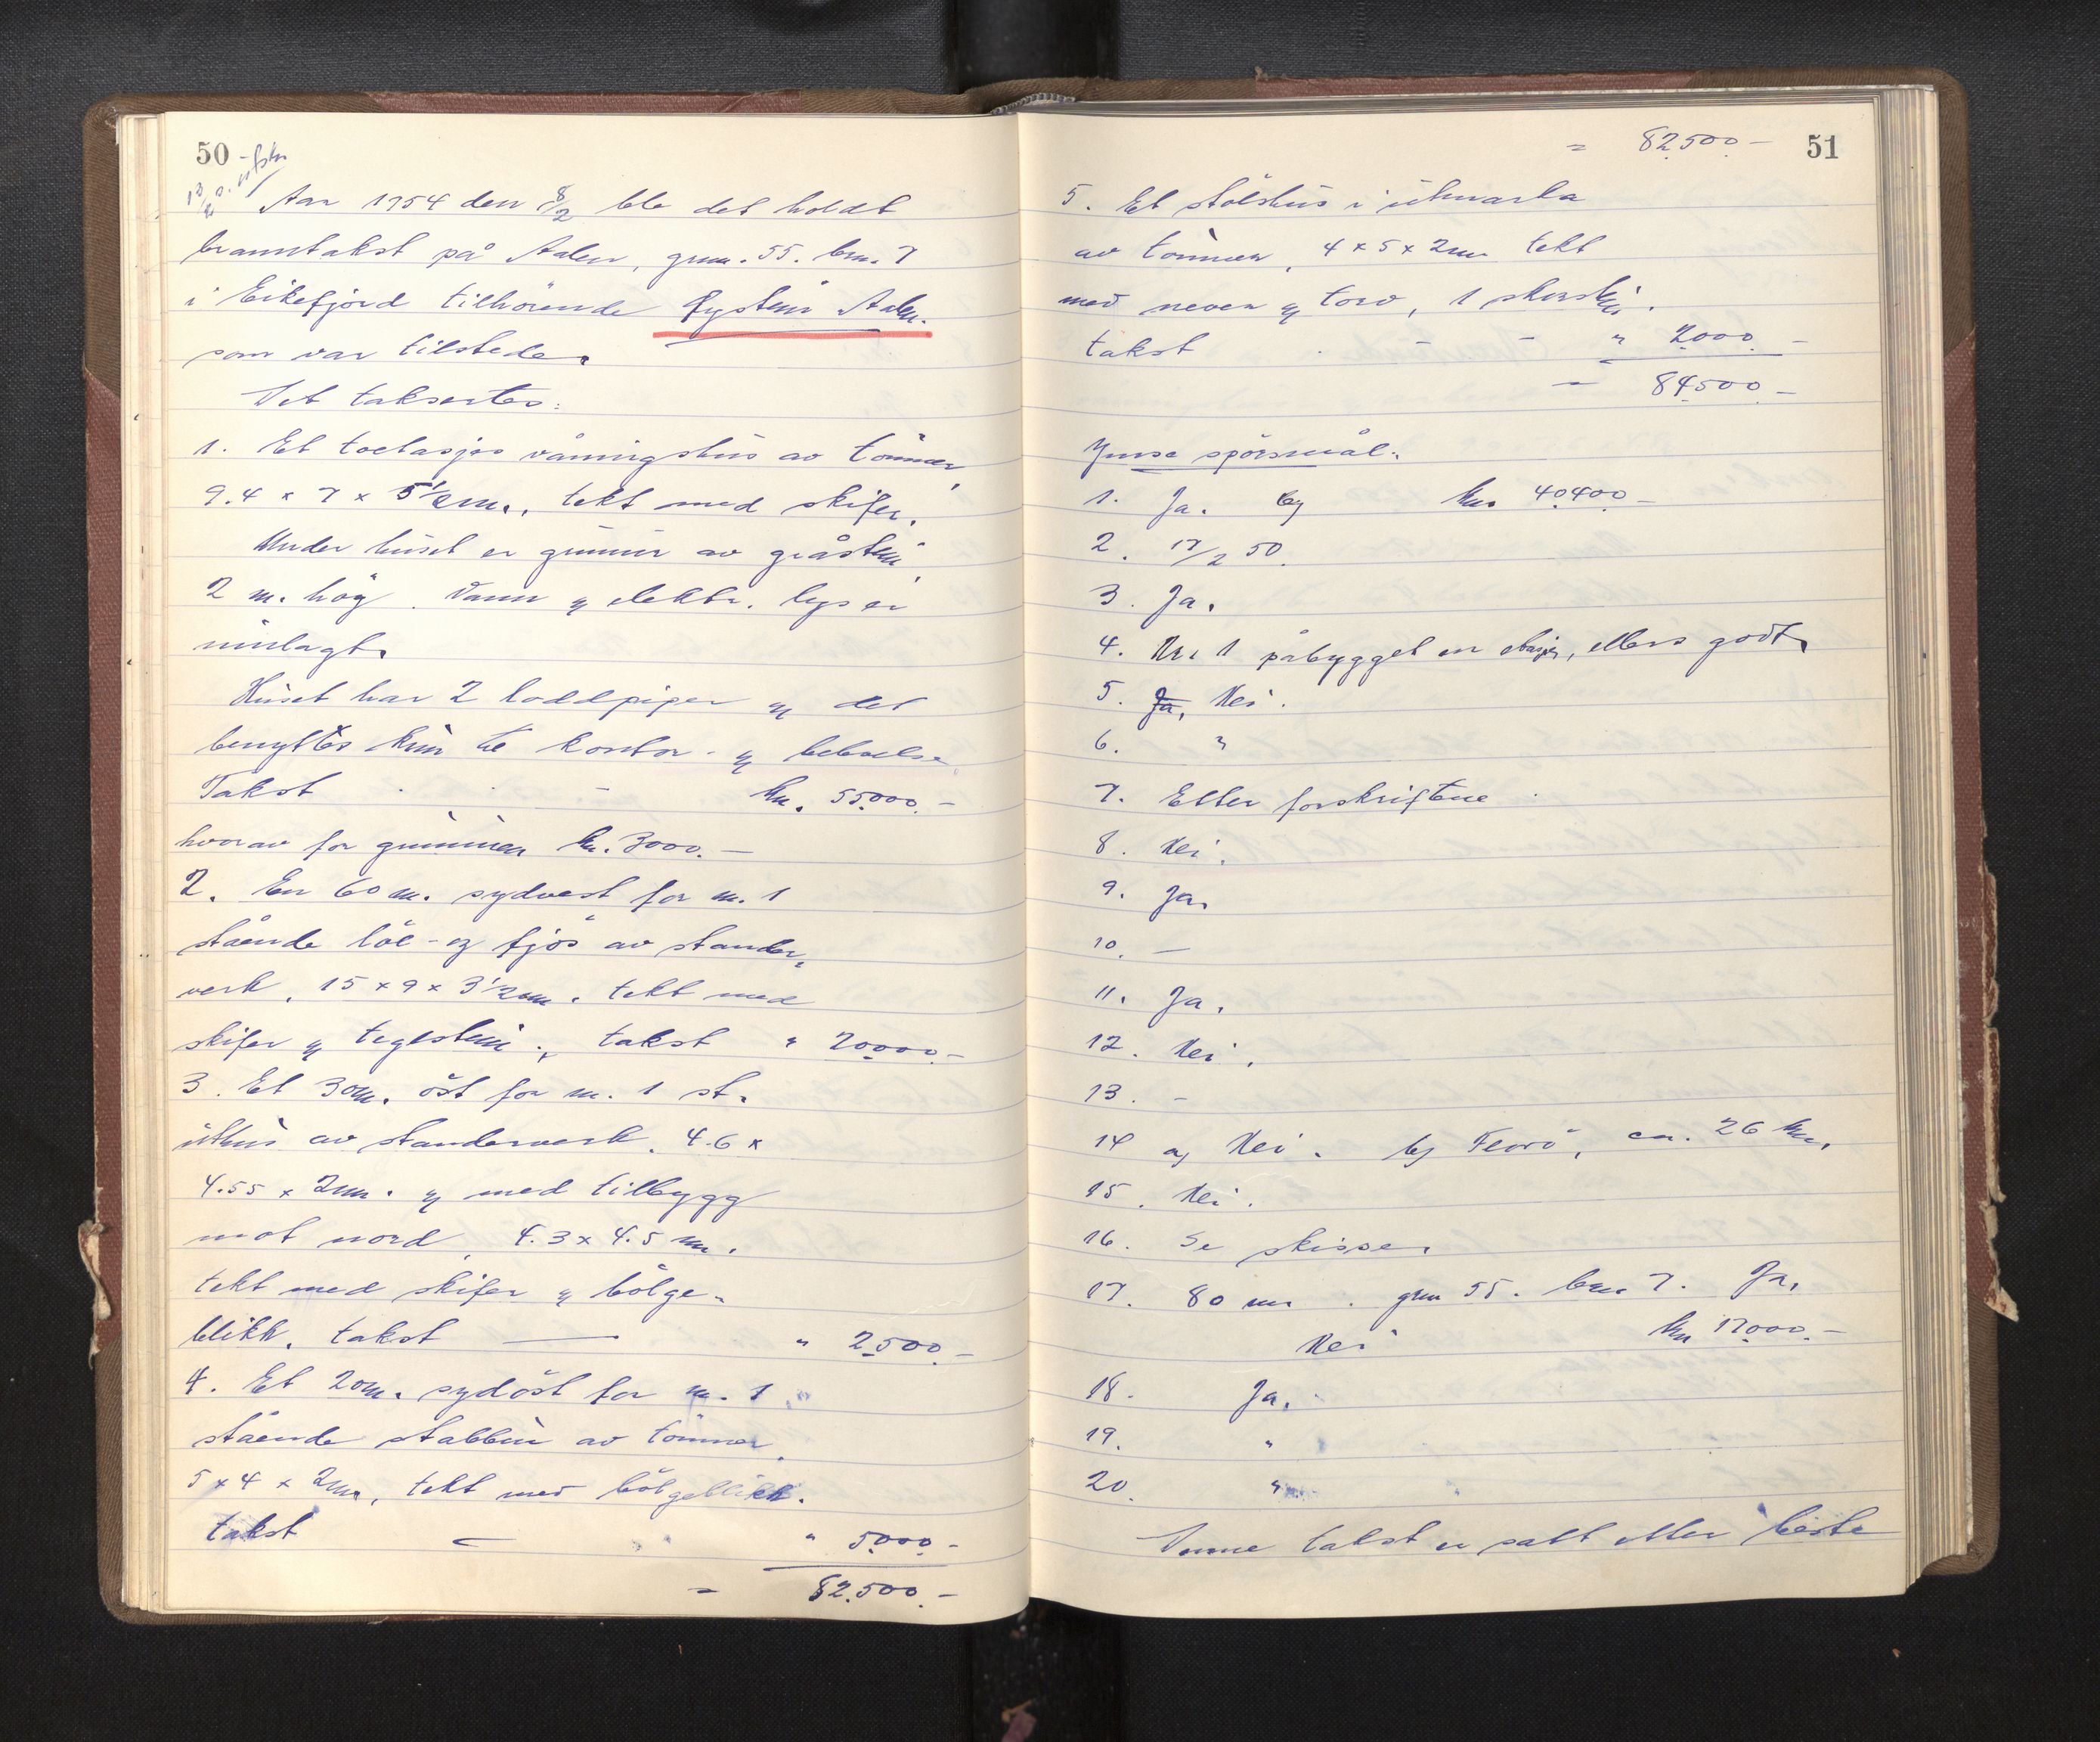 50
13/2 s. utskr.
Aar 1954 den 8/2 ble det holdt
branntakst på Aalen, gnr. 55. bnr. 7
i Eikefjord tilhörende Øystein Aalen.
som var tilstede.
Det taksertes:
1. Et toetasjes våningshus av tömmer,
9.4 x 7 x 5 1/2 m., tekt med skifer.
Under huset er grunnur av gråstein,
2 m. hög. Vann og elektr. lys er
innlagt.
Huset har 2 loddpiper og det
benyttes kun til kontor- og beboelse.
Takst - kr. 55.000.-
hvorav for grunnmuren kr. 3000.-
2. En 60 m. sydvest for m. 1
stående löe- og fjös av stander-
verk, 15 x 9 x 3 1/2 m. tekt med
skifer og teglstein, takst " 20.000.-
3. Et 30m. öst for m. 1 st.
uthus av standerverk, 4.6 x
4.55 x 2m. og med tilbygg
mot nord, 4.3 x 4.5 m.
tekt med skifer og bölge-
blikk. takst — " 2.500.-
4. Et 20m. sydöst for m. 1
stående stabbur av tömmer,
5 x 4 x 2m., tekt med bölgeblikk.
takst - " 5.000.-
= 82.500.-
51
= 82.500-
5. Et stölshus i utmarka
av tömmer, 4 x 5 x 2m tekt
med never og torv, 1 skorstein.
takst . - - " 2.000.-
= 84.500.-
Ymse spörsmål:
1. Ja. b) kr. 40.400.-
2. 17/2 50.
3. Ja.
4. Nr. 1 påbygget en etasje, ellers godt.
5. Ja, Nei.
6. "
7. Etter forskriftene.
8. Nei.
9. Ja.
10. —
11. Ja.
12. Nei.
13. -
14 a) Nei. b) Florö, ca. 26 km.
15. Nei.
16. Se skisse.
17. 80 m. gnr 55. bnr 7. Ja.
Nei kr 17.000.-
18. Ja.
19. "
20. "
Denne takst er satt etter beste